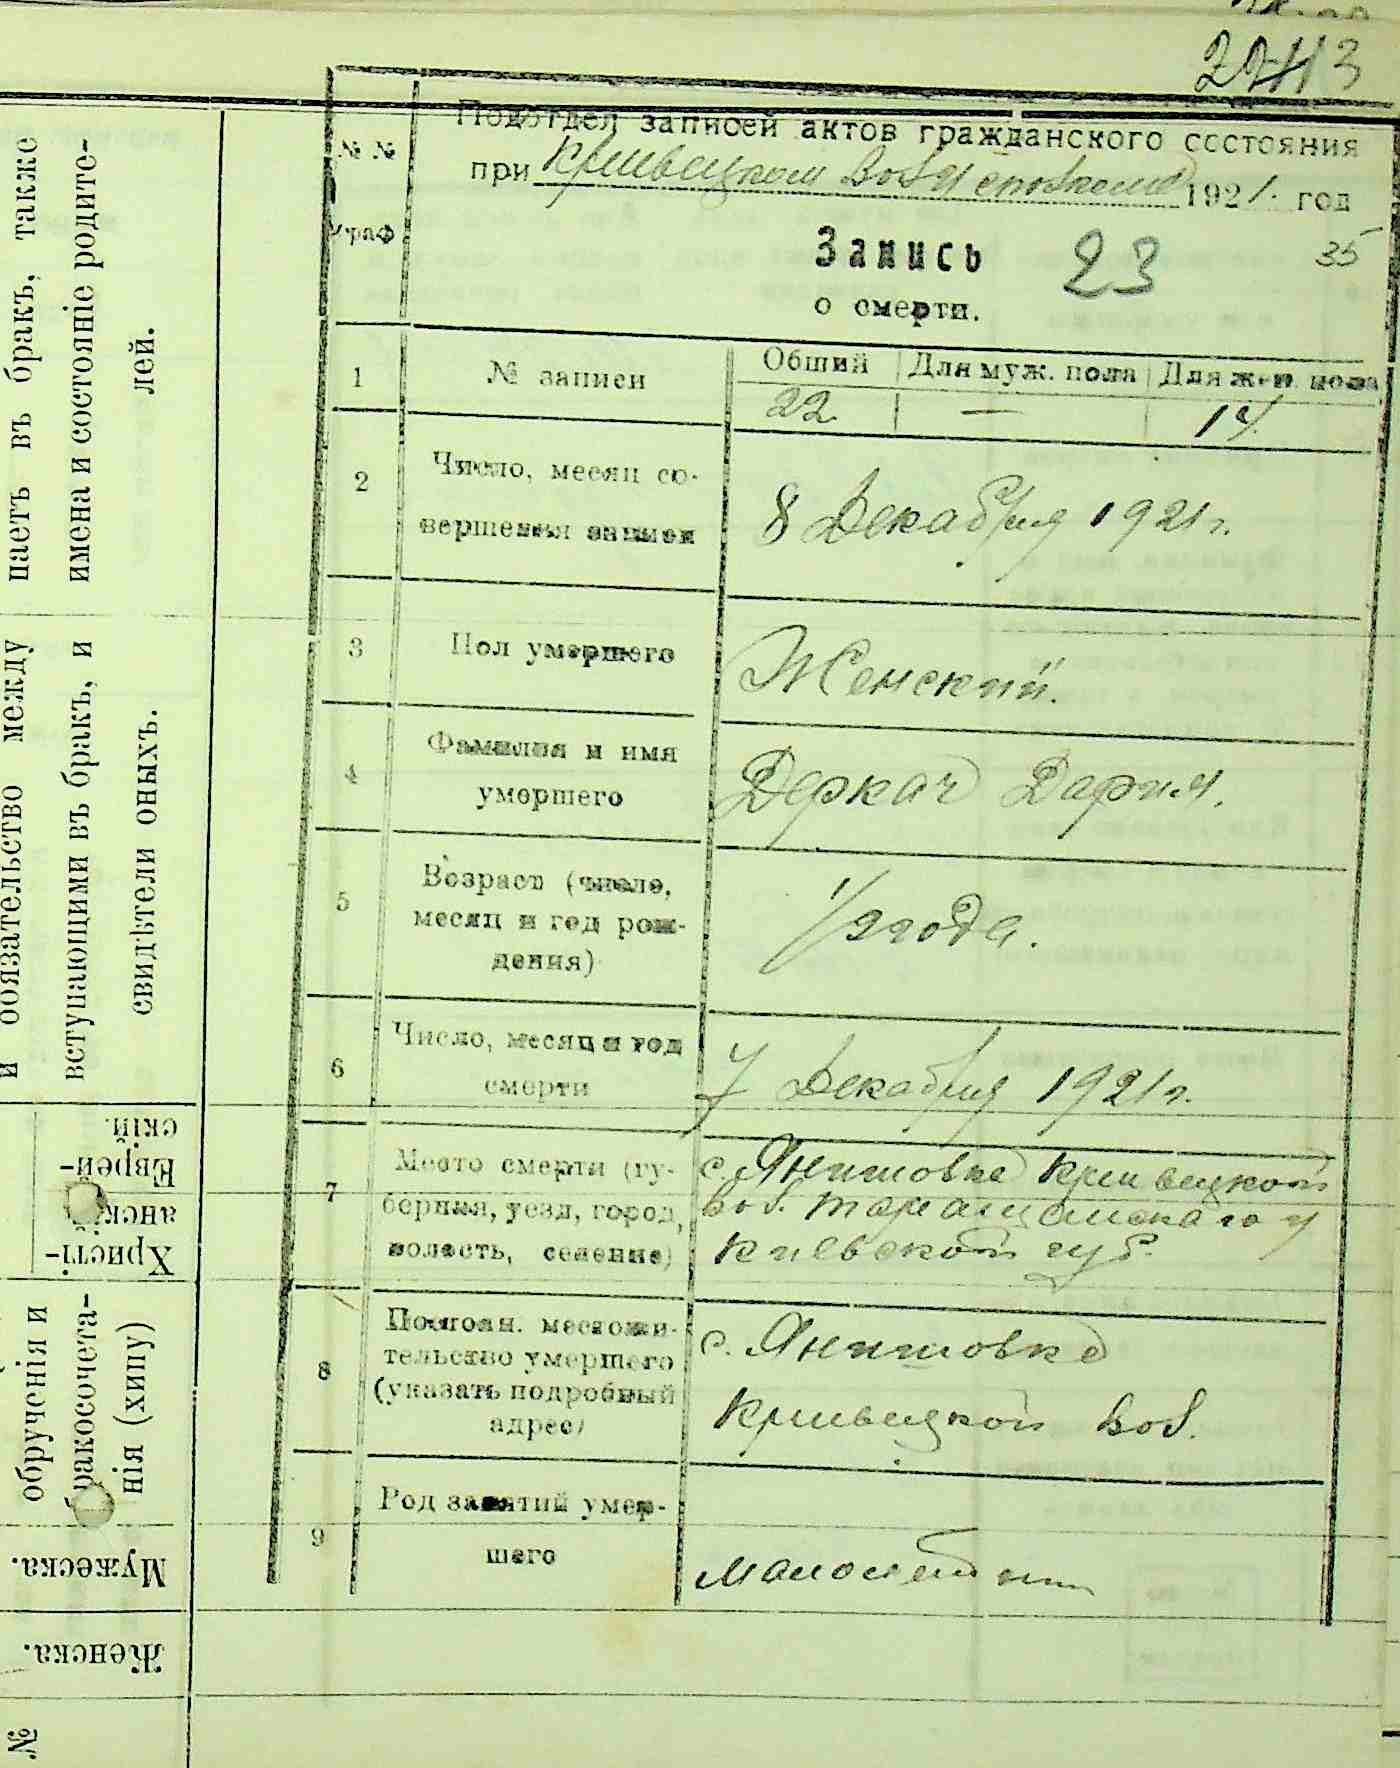 2243
№ №
граф
Подотдел записей актов гражданского состояния
при Кривецком Вол Исполкоме 1921. год
Запись 23 35
о смерти.
1 № записи Общий Для муж. пола Для жен. пола
22 — 14.
2 Число, месяц со-
вершения записи
8 Декабря 1921 г.
3 Пол умершего
Женский.
4 Фамилия и имя
умершего
Деркач Дария.
5 Возраст (число,
месяц и год рож-
дения)
1/2 года.
6 Число, месяц и год
смерти
7 Декабря 1921 г.
7 Место смерти (гу-
берния, уезд, город,
волость, селение)
с. Янишовке Кривецкой
вол. Таращанскаго у
Киевской губ.
8 Постоян. местожи-
тельство умершего
(указать подробный
адрес)
с. Янишовке
Кривецкой вол.
9 Род занятий умер-
шего
малолетн
паетъ въ бракъ, также
имена и состояніе родите-
лей.
и обязательство между
вступающими въ бракъ, и
свидѣтели оныхъ.
Еврей-
скій.
Христі-
анскій
обрученія и
бракосочета-
нія (хипу)
Мужеска.
Женска.
№